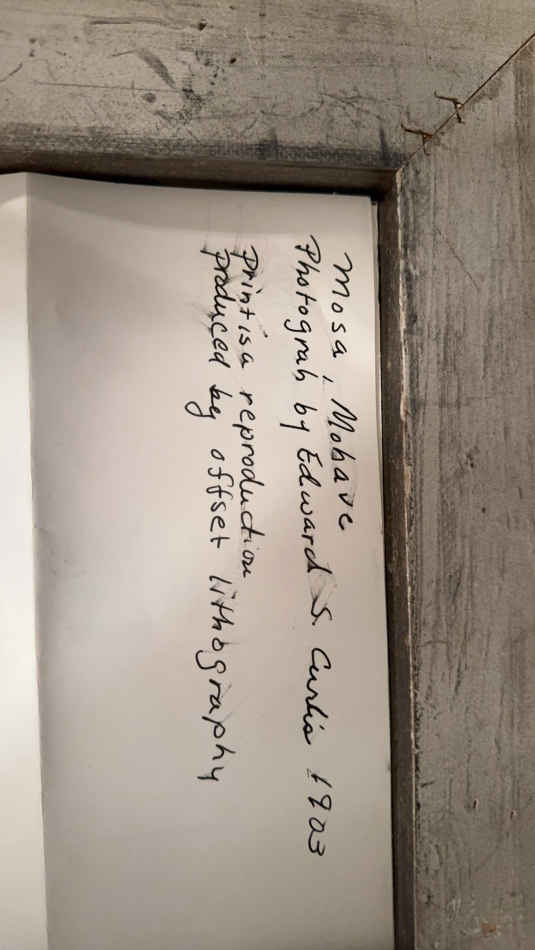 Mosa, Mohave
Photograh by Edward S. Curtis 1903
Print is a reproduction
produced by offset lithography